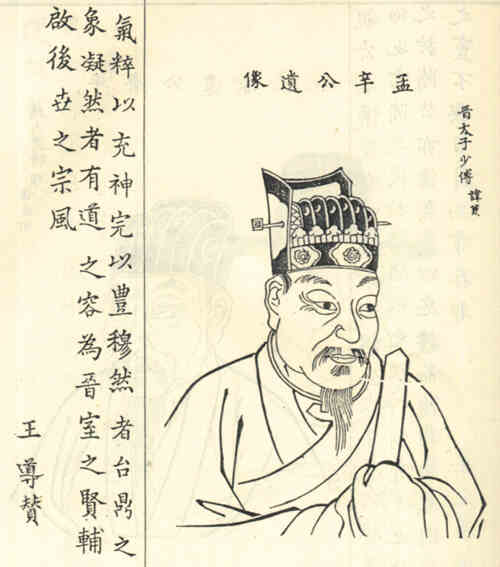 孟辛公遺像
晋太子少傅諱
氣粹以充神完以豐穆然者台鼎之
象凝然者有道之容為晉室之賢輔
啟後世之宗風
王導贊